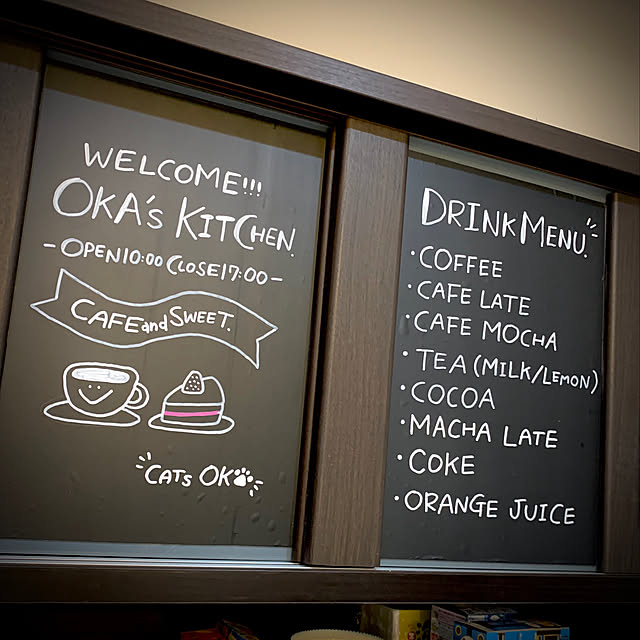 WELCOME!!!
OKA'S KITCHEN.
-OPEN10:00 CLOSE17:00-
CAFE and SWEET.
CATS OK
DRINK MENU.
・COFFEE
・CAFE LATE
・CAFE MOCHA
・TEA (MILK/LEMON)
・COCOA
・MACHA LATE
・COKE
・ORANGE JUICE